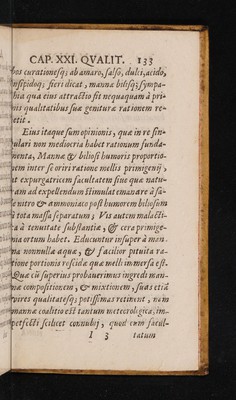 CAP. XXI. QVALIT. 133
bos curationesq; ab amaro, salso, dulci, acido,
insipidoq; fieri dicat, mannæ bilisq; sympa-
hia quæ eius attractio fit nequaquam à pri-
nis qualitatibus suæ genituræ rationem re-
etit.
Eius itaque sum opinionis, quæ in re sin-
ulari non mediocria habet rationum funda-
nenta, Mannæ & biliosi humoris proportio-
nem inter se oriri ratione mellis primigenij,
ut expurgatricem facultatem siue quæ natu-
am ad expellendum stimulat emanare à sa-
e nitro & ammoniaco post humorem biliosum
à tota massa separatum; Vis autem malacti-
a à tenuitate substantiæ, & cera primige-
nia ortum habet. Educuntur insuper à man-
na nonnullæ aquæ, & facilior pituita ra-
tione portionis roscidæ quæ melli immersa est.
Quæ cũ superius probauerimus ingredi man-
næ compositionem, & mixtionem, suas etiã
vires qualitatesq; potissimas retinent, nam
mannæ coalitio est tantum meteorologica, im-
perfecti scilicet connubij, quod cum facul-
I 3 tatum